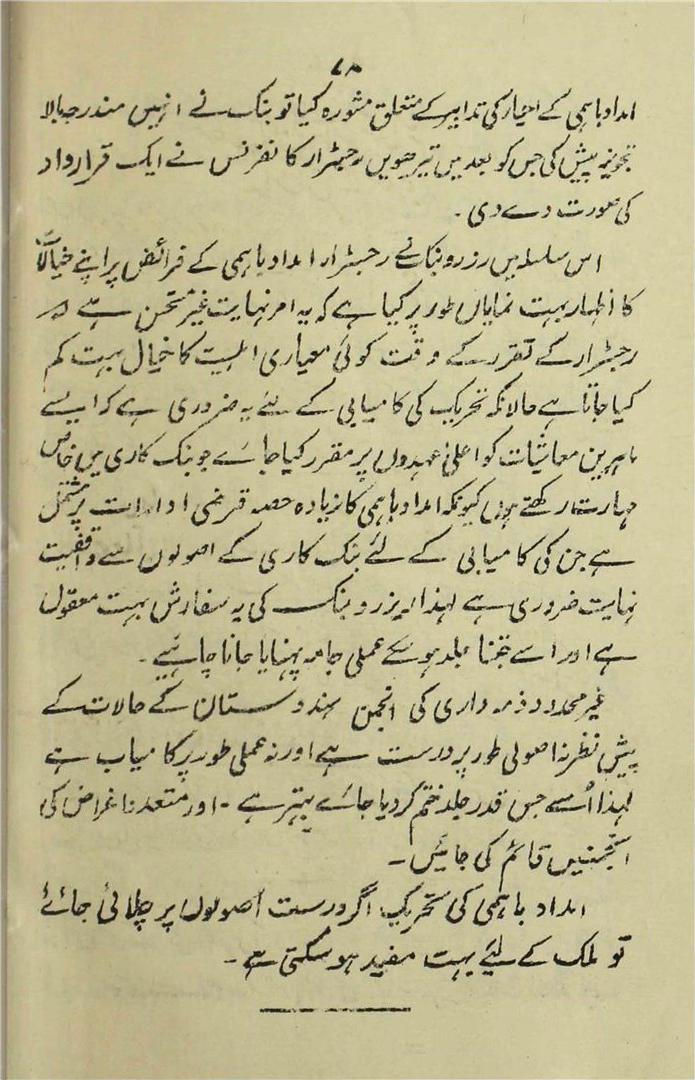 ۷۸
امداد باہمی کے احیار کی تدابیر کے متعلق مشورہ کیا تو بنک نے انہیں مندرجہ بالا
تجویز پیش کی جس کو بعد میں تیرھویں رجسٹرار کانفرنس نے ایک قرارداد
کی صورت دے دی ۔
اس سلسلہ میں رزرو بنک نے رجسٹرار امداد باہمی کے فرائض پر اپنے خیالات
کا اظہار بہت نمایاں طور پر کیا ہے کہ یہ امر نہایت غیر مستحسن ہے کہ
رجسٹرار کے تقرر کے وقت کوئی معیاری اہلیت کا خیال بہت کم
کیا جاتا ہے حالانکہ تحریک کی کامیابی کے لئے یہ ضروری ہے کہ ایسے
ماہرین معاشیات کو اعلیٰ عہدوں پر مقرر کیا جائے جو بنک کاری میں خاص
مہارت رکھتے ہوں کیونکہ امداد باہمی کا زیادہ حصہ قرضی ادارات پر مشتمل
ہے جن کی کامیابی کے لئے بنک کاری کے اصولوں سے واقفیت
نہایت ضروری ہے لہذا ریزرو بنک کی یہ سفارش بہت معقول
ہے اور اسے جتنا جلد ہوسکے عملی جامہ پہنایا جانا چاہئیے ۔
غیر محدود ذمہ داری کی انجمن ہندوستان کے حالات کے
پیش نظر نہ اصولی طور پر درست ہے اور نہ عملی طور پر کامیاب ہے
لہذا اُسے جس قدر جلد ختم کردیا جائے بہتر ہے ۔ اور متعدد اغراض کی
انجمنیں قائم کی جائیں ۔
امداد باہمی کی تحریک اگر درست اصولوں پر چلائی جائے
تو ملک کے لئیے بہت مفید ہوسکتی ہے ۔